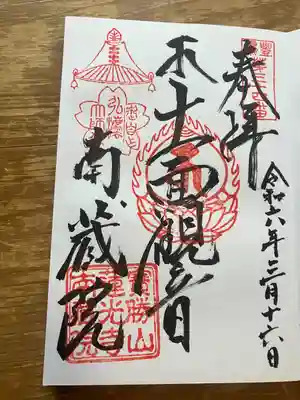 奉拝
令和六年三月十六日
十一面観音
南蔵院
寶勝山
蓮光寺
南蔵院